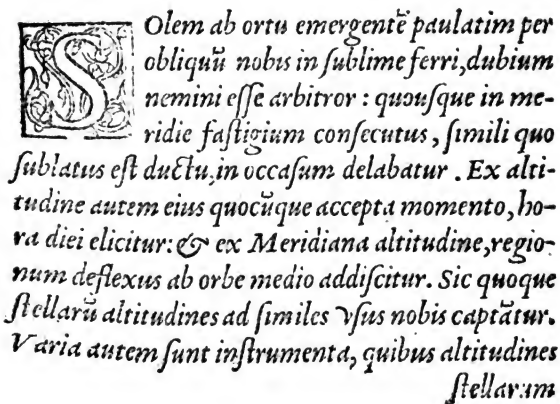 SOlem ab ortu emergentẽ paulatim per
obliquũ nobis in ſublime ferri, dubium
nemini eſſe arbitror : quouſque in me-
ridie faſtigium conſecutus, ſimili quo
ſublatus eſt ductu, in occaſum delabatur . Ex alti-
tudine autem eius quocũque accepta momento, ho-
ra diei elicitur: & ex Meridiana altitudine, regio-
num deflexus ab orbe medio addiſcitur. Sic quoque
ſtellarũ altitudines ad ſimiles vſus nobis captãtur.
Varia autem ſunt inſtrumenta, quibus altitudines
ſtellarum